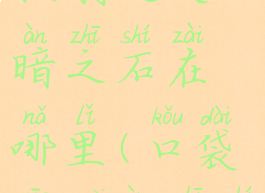 àn zhī shí zài
暗之石在
nǎ lǐ kǒu dài
哪里(口袋